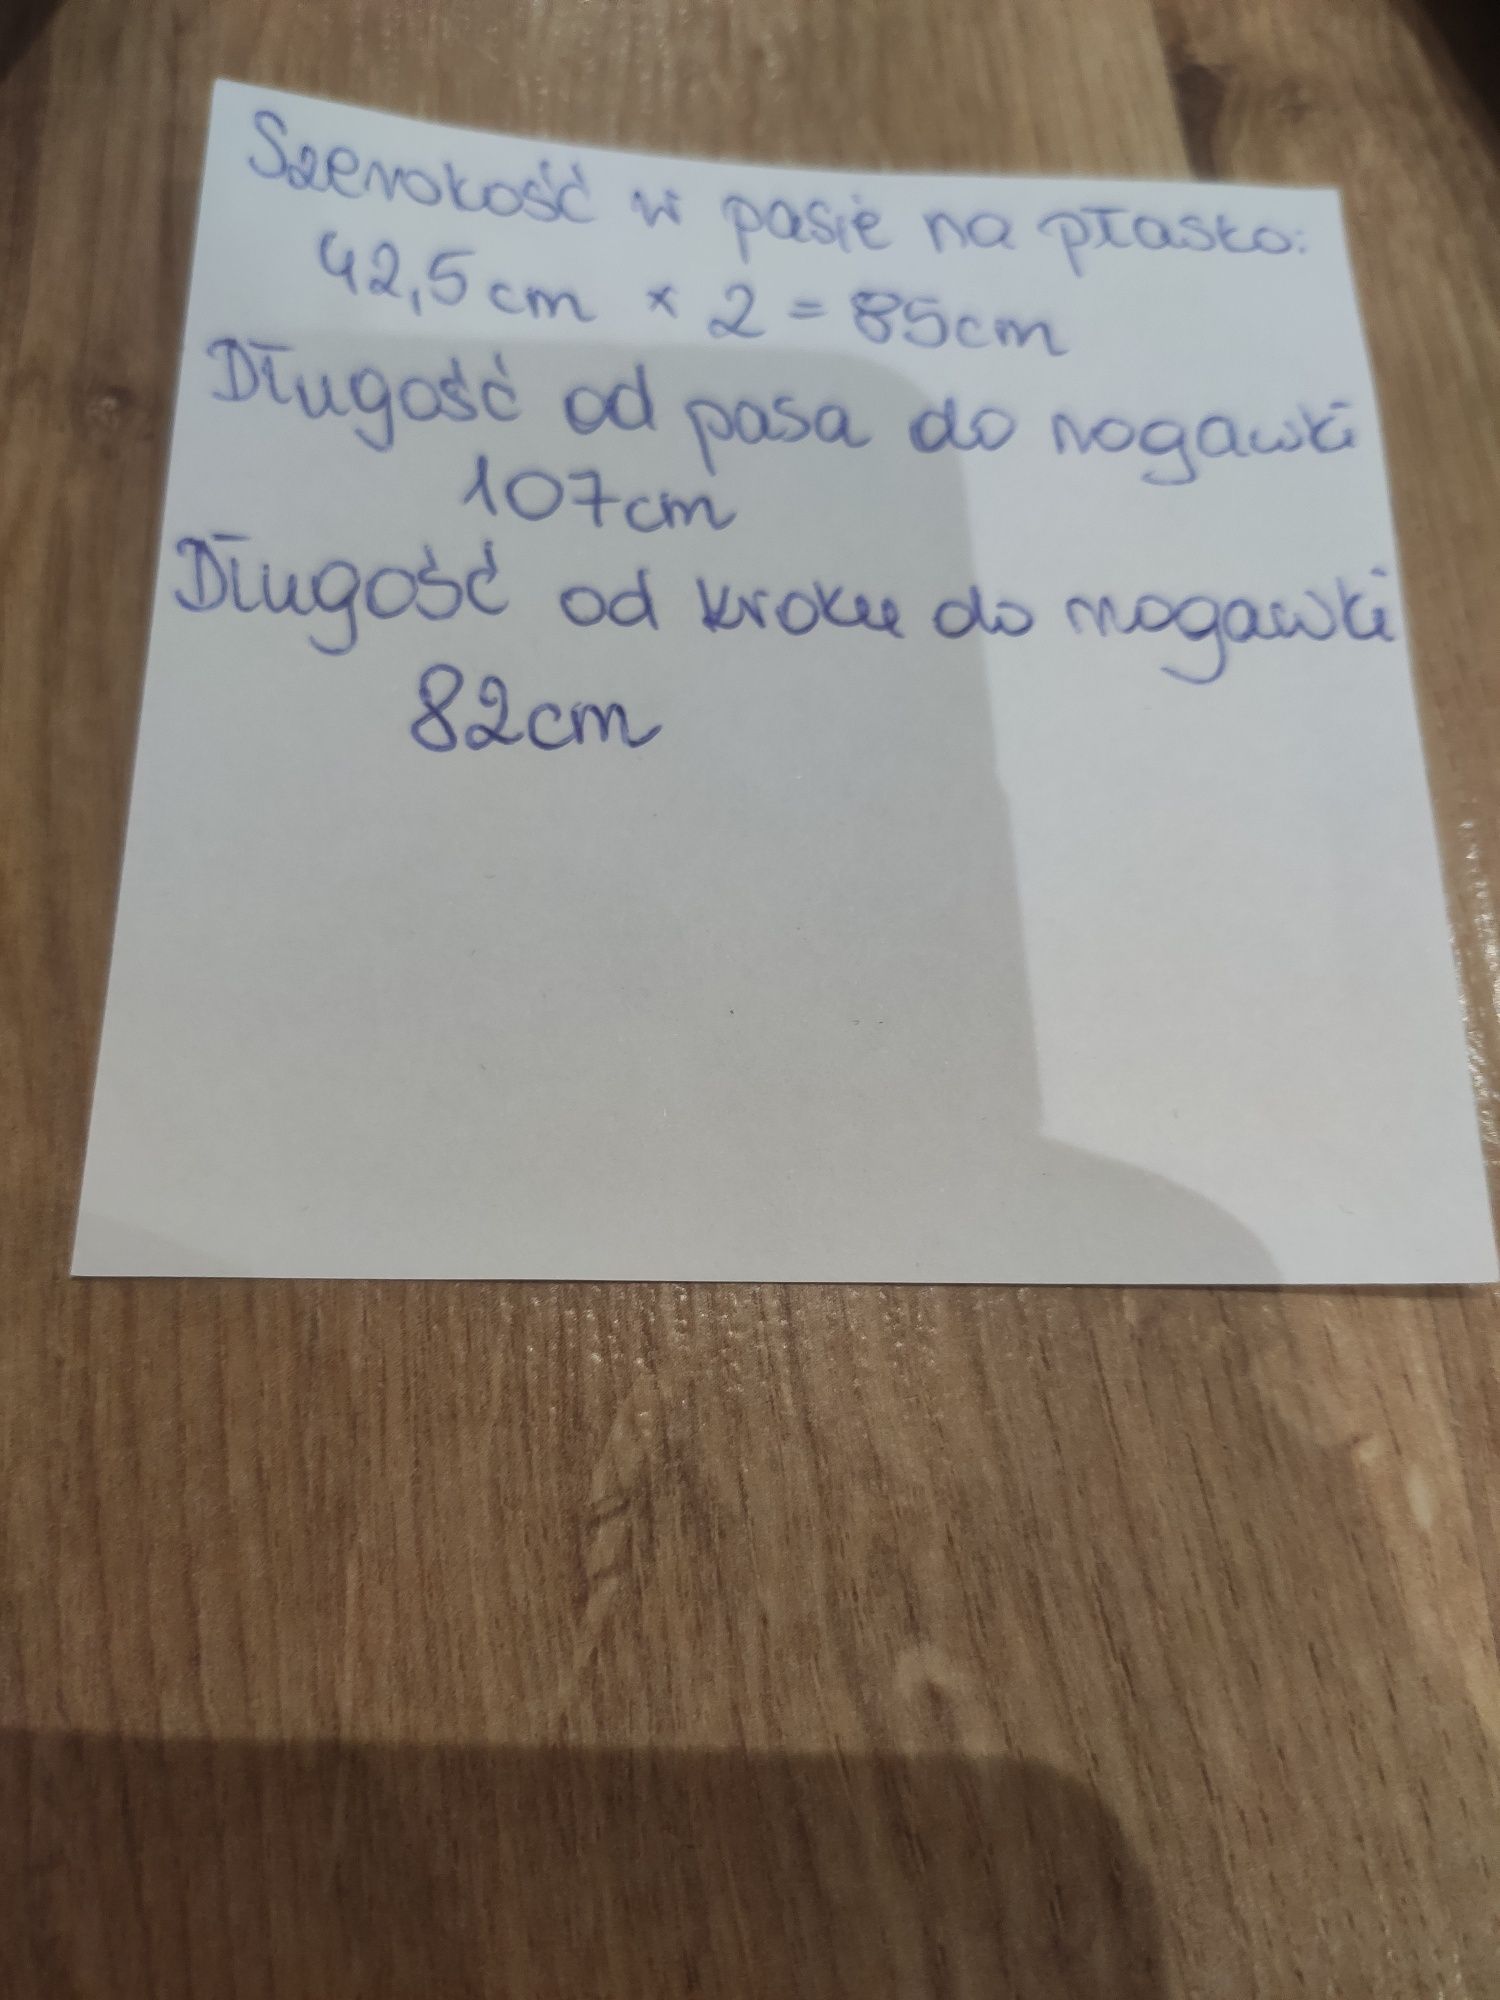 Szerokość w pasie na płasko:
42,5cm × 2 = 85cm
Długość od pasa do nogawki
107cm
Długość od kroku do nogawki
82cm